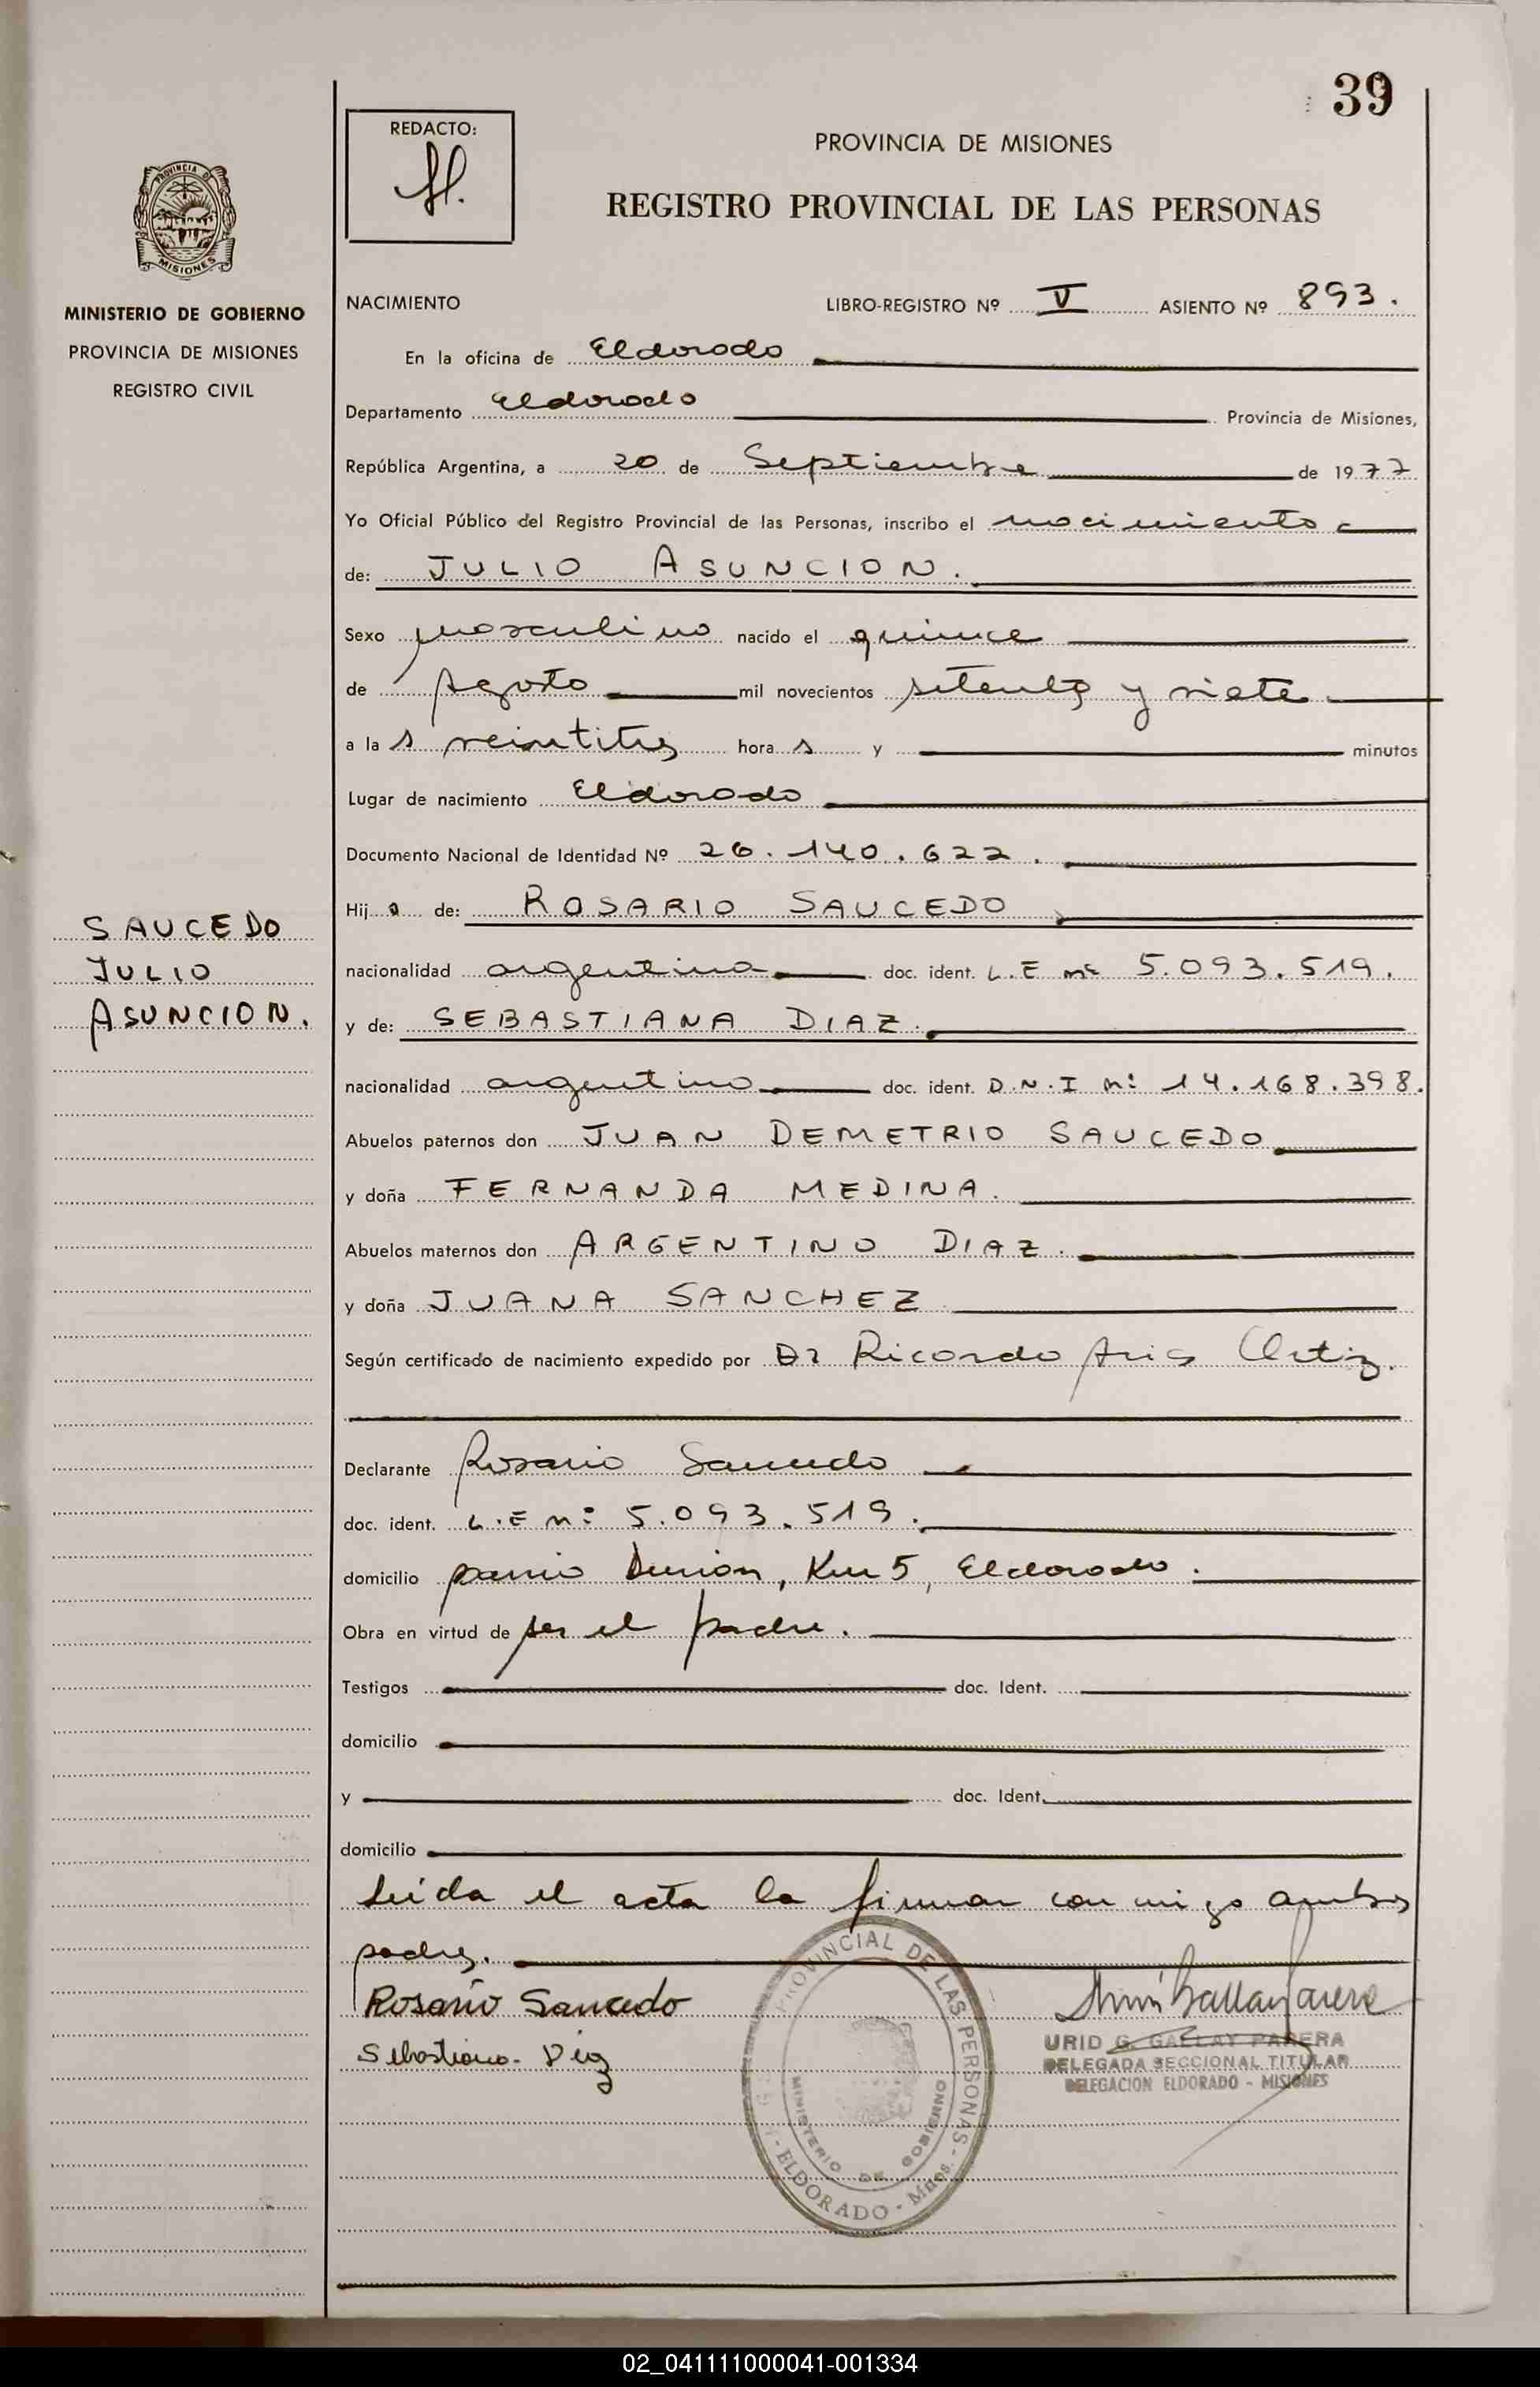 39
REDACTO:
PROVINCIA DE MISIONES
REGISTRO PROVINCIAL DE LAS PERSONAS
PROVINCIA DE
MISIONES
MINISTERIO DE GOBIERNO
PROVINCIA DE MISIONES
REGISTRO CIVIL
NACIMIENTO LIBRO-REGISTRO Nº V ASIENTO Nº 893.
En la oficina de Eldorado
Departamento Eldorado Provincia de Misiones,
República Argentina, a 20 de Septiembre de 1977
Yo Oficial Público del Registro Provincial de las Personas, inscribo el nacimiento
de: JULIO ASUNCION.
Sexo masculino nacido el quince
de Agosto mil novecientos setenta y siete
a las veintitres horas y minutos
Lugar de nacimiento Eldorado
Documento Nacional de Identidad Nº 26.140.622.
Hijo de: ROSARIO SAUCEDO
SAUCEDO
JULIO
ASUNCION.
nacionalidad argentina doc. ident. L.E nº 5.093.519.
y de: SEBASTIANA DIAZ.
nacionalidad argentina doc. ident. D.N.I nº 14.168.398.
Abuelos paternos don JUAN DEMETRIO SAUCEDO
y doña FERNANDA MEDINA.
Abuelos maternos don ARGENTINO DIAZ.
y doña JUANA SANCHEZ
Según certificado de nacimiento expedido por Dr Ricardo Ortiz.
Declarante Rosario Saucedo
doc. ident. L.E nº 5.093.519.
domicilio Km 5, Eldorado.
Obra en virtud de ser el padre.
Testigos doc. Ident.
domicilio
y doc. Ident.
domicilio
Leída el acta la firman con migo ambos
padres.
Rosario Saucedo
Sebastiana Diaz
PROVINCIAL DE LAS PERSONAS - ELDORADO - Mnes.
MINISTERIO DE GOBIERNO
URID G. GALLAY PARERA
DELEGADA SECCIONAL TITULAR
DELEGACION ELDORADO - MISIONES
02_041111000041-001334